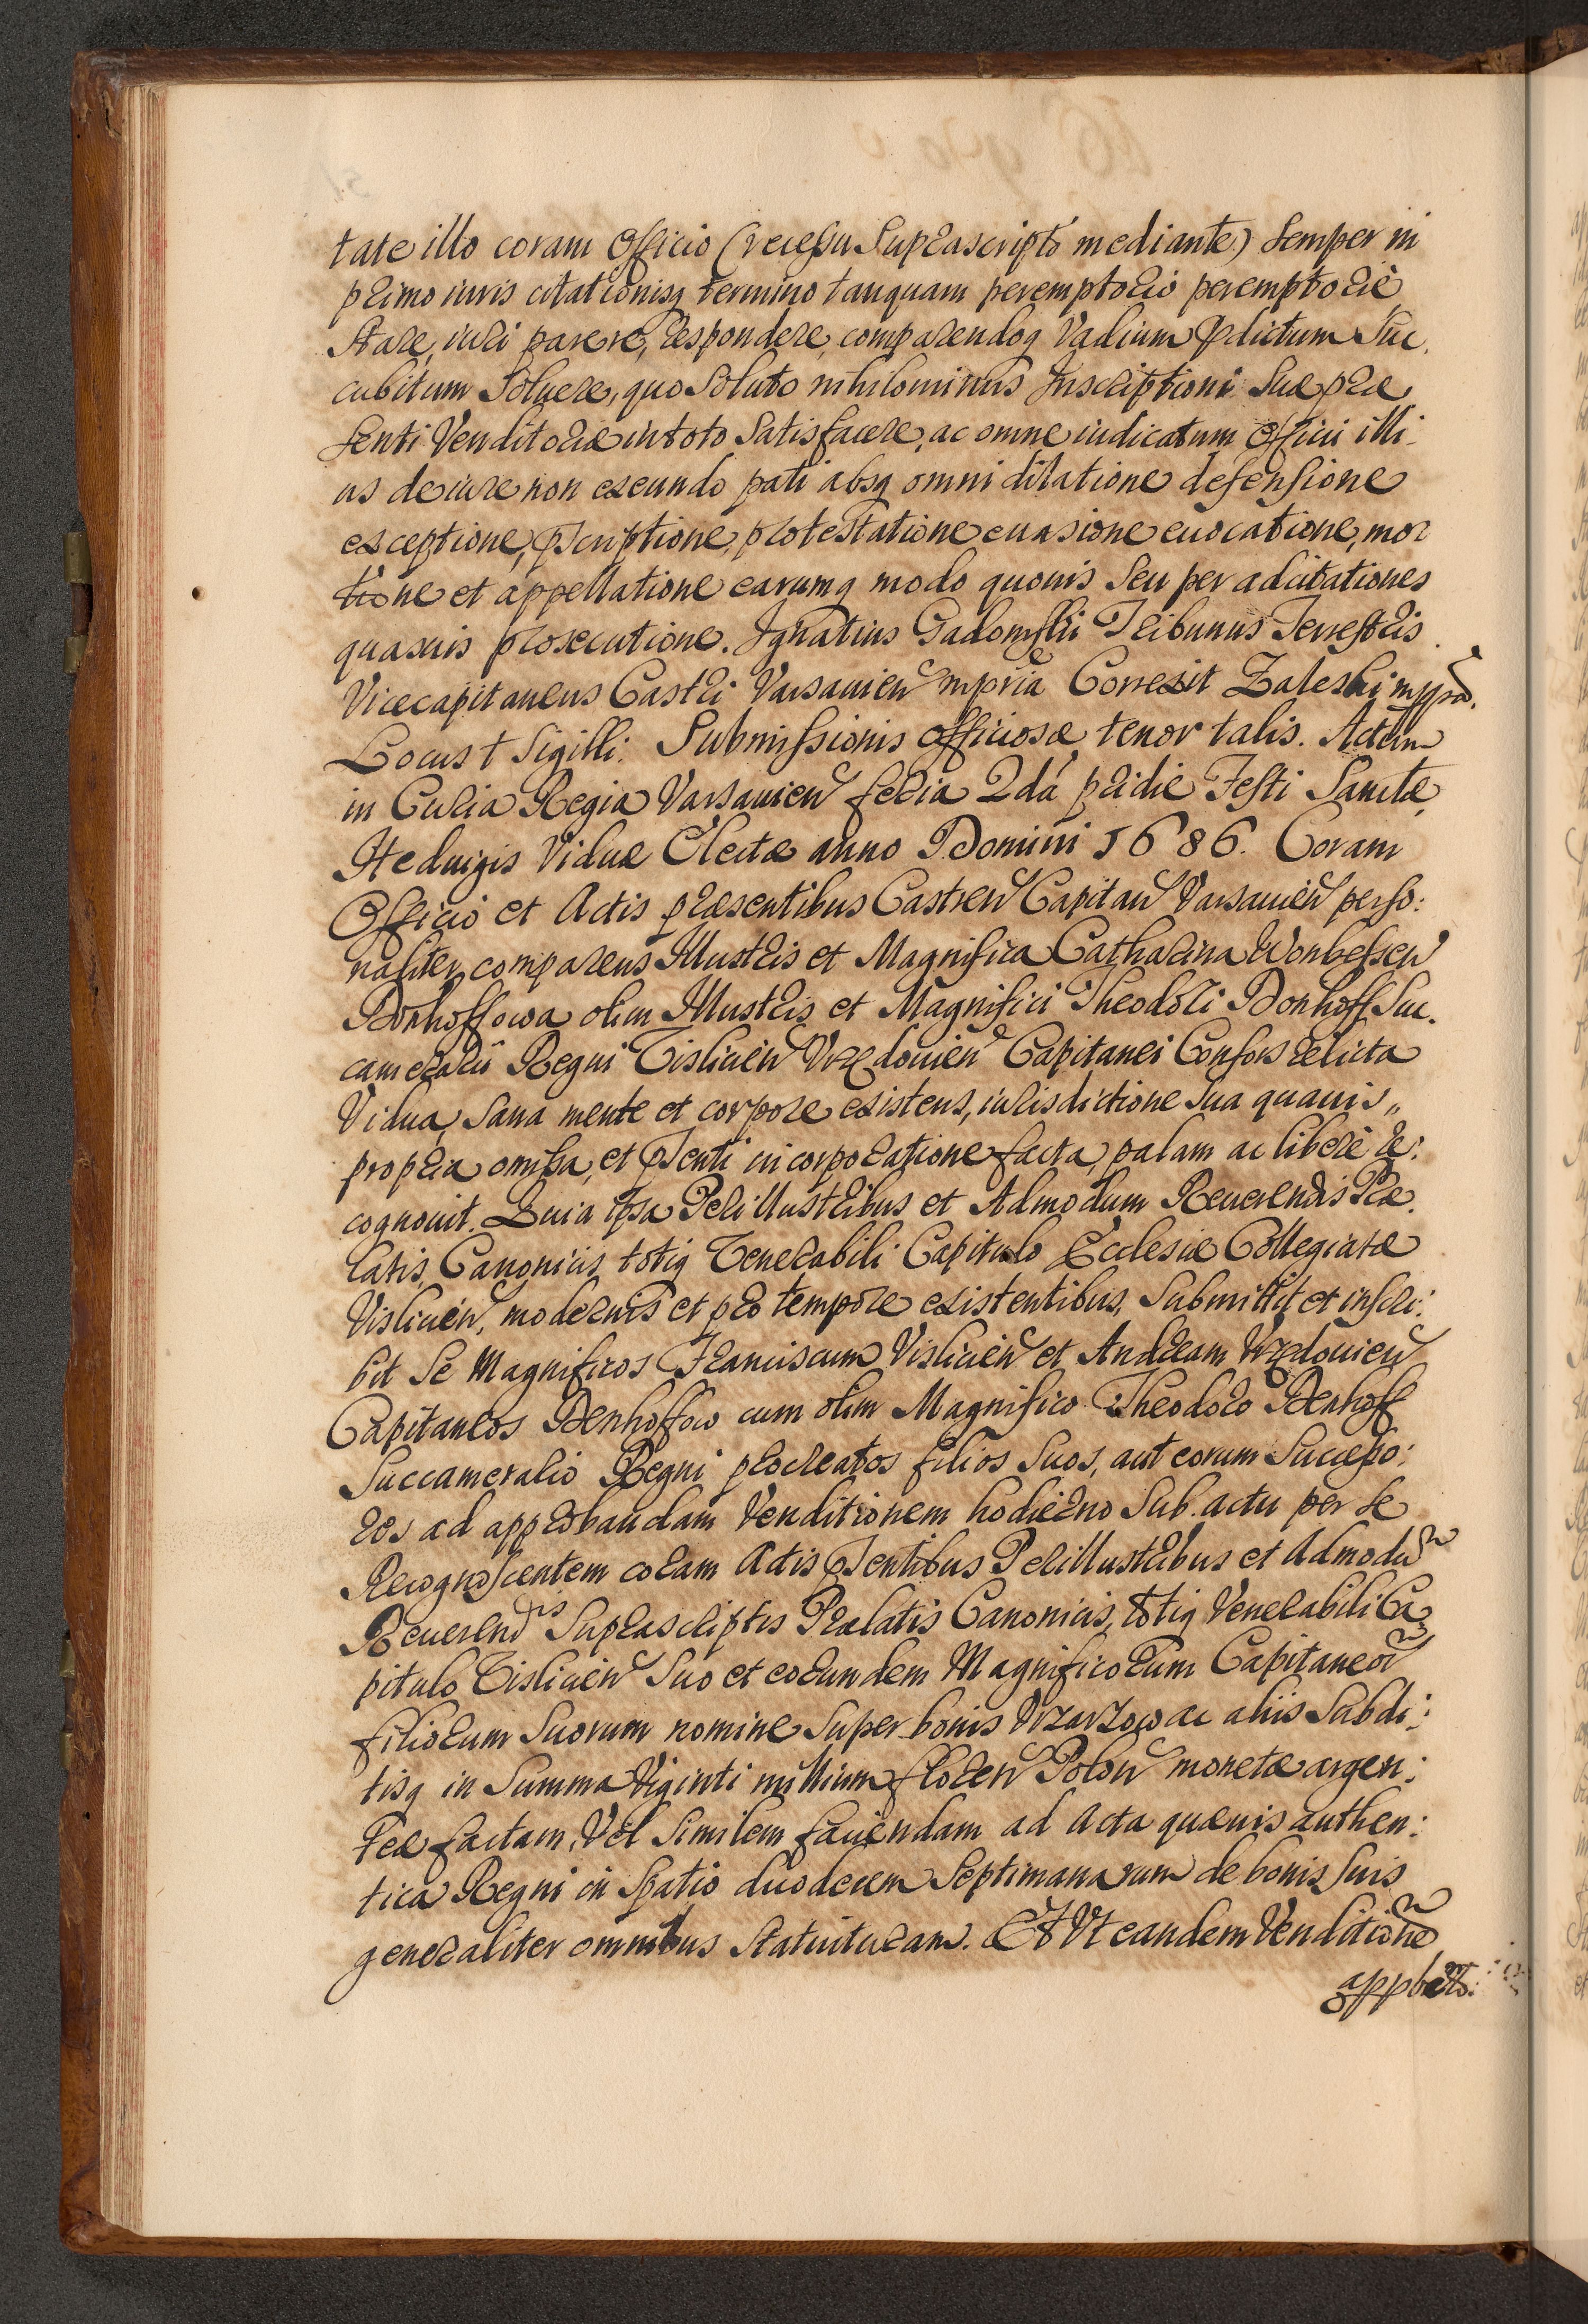 tate illo coram Officio (recessu Suprascripto mediante) semper in
primo iuris citationisq termino tanquam peremptorio peremptorie
Stare, iuri parere, respondere, comparendoq Vadium pdictum Suc,
cubitum Soluere, quo Soluto nihilominus Inscriptioni Suæ præ
senti Venditoriæ in toto Satisfacere, ac omne iudicatum Officii illi-
us de iure non exeundo pati absq omni dilatione defensione
exceptione, pscriptione, protestatione euasione euocatione, mo
tione et appellatione earumq modo quouis Seu per adcitationes
quasuis prosecutione. Ignatius Gadomski Tribunus Terrestris
Vicecapitaneus Castri Varsauien mpria Correxit Zaleski mppa.
Locus † Sigilli. Submissionis officiosæ tenor talis. Actum
in Curia Regia Varsauien feria 2dá pridie Festi Sanctæ
Heduigis Viduæ Electæ anno Domini 1686. Coram
Officio et Actis præsentibus Castren Capitan Varsauien perso:
naliter comparens Illustris et Magnifica Catharina Wonbessen
Donhoffowa olim Illustris et Magnifici Theodori Donhoff Suc.
camerarii Regni Vislicien Vrzędouien Capitanei Consors relicta
Vidua, Sana mente et corpore existens, iurisdictione Sua quauis „
propria omissa, et psenti incorporatione facta, palam ac liberè re:
cognouit. Quia ipsa Perillustribus et Admodum Reuerendis Præ.
latis, Canonicis, totiq Venerabili Capitulo Ecclesiæ Collegiatæ
Vislicien, modernis et pro tempore existentibus, Submittit et inscri:
bit Se Magnificos Franciscum Vislicien et Andream Vrzędouien
Capitaneos Denhoffow cum olim Magnifico Theodoro Denhoff
Succamerario Regni procreatos filios Suos, aut eorum Successo:
res ad approbandam Venditionem hodierno Sub actu per Se
Recognoscentem coram Actis psentibus Perillustribus et Admodu
Reuerendis Suprascriptis Prælatis Canonicis, totiq Venerabili Ca
pitulo Vislicien Suo et eorundem Magnificorum Capitaneor
filiorum Suorum nomine Super bonis Wzarzow ac aliis Sabdi:
tisq in Summa Viginti millium floren Polon monetæ argen:
teæ factam, Vel Similem faciendam ad Acta quæuis authen:
tica Regni in Spatio duodecem Septimanarum de bonis Suis
generaliter omnibus Statuituram. Et Vt eandem Venditione